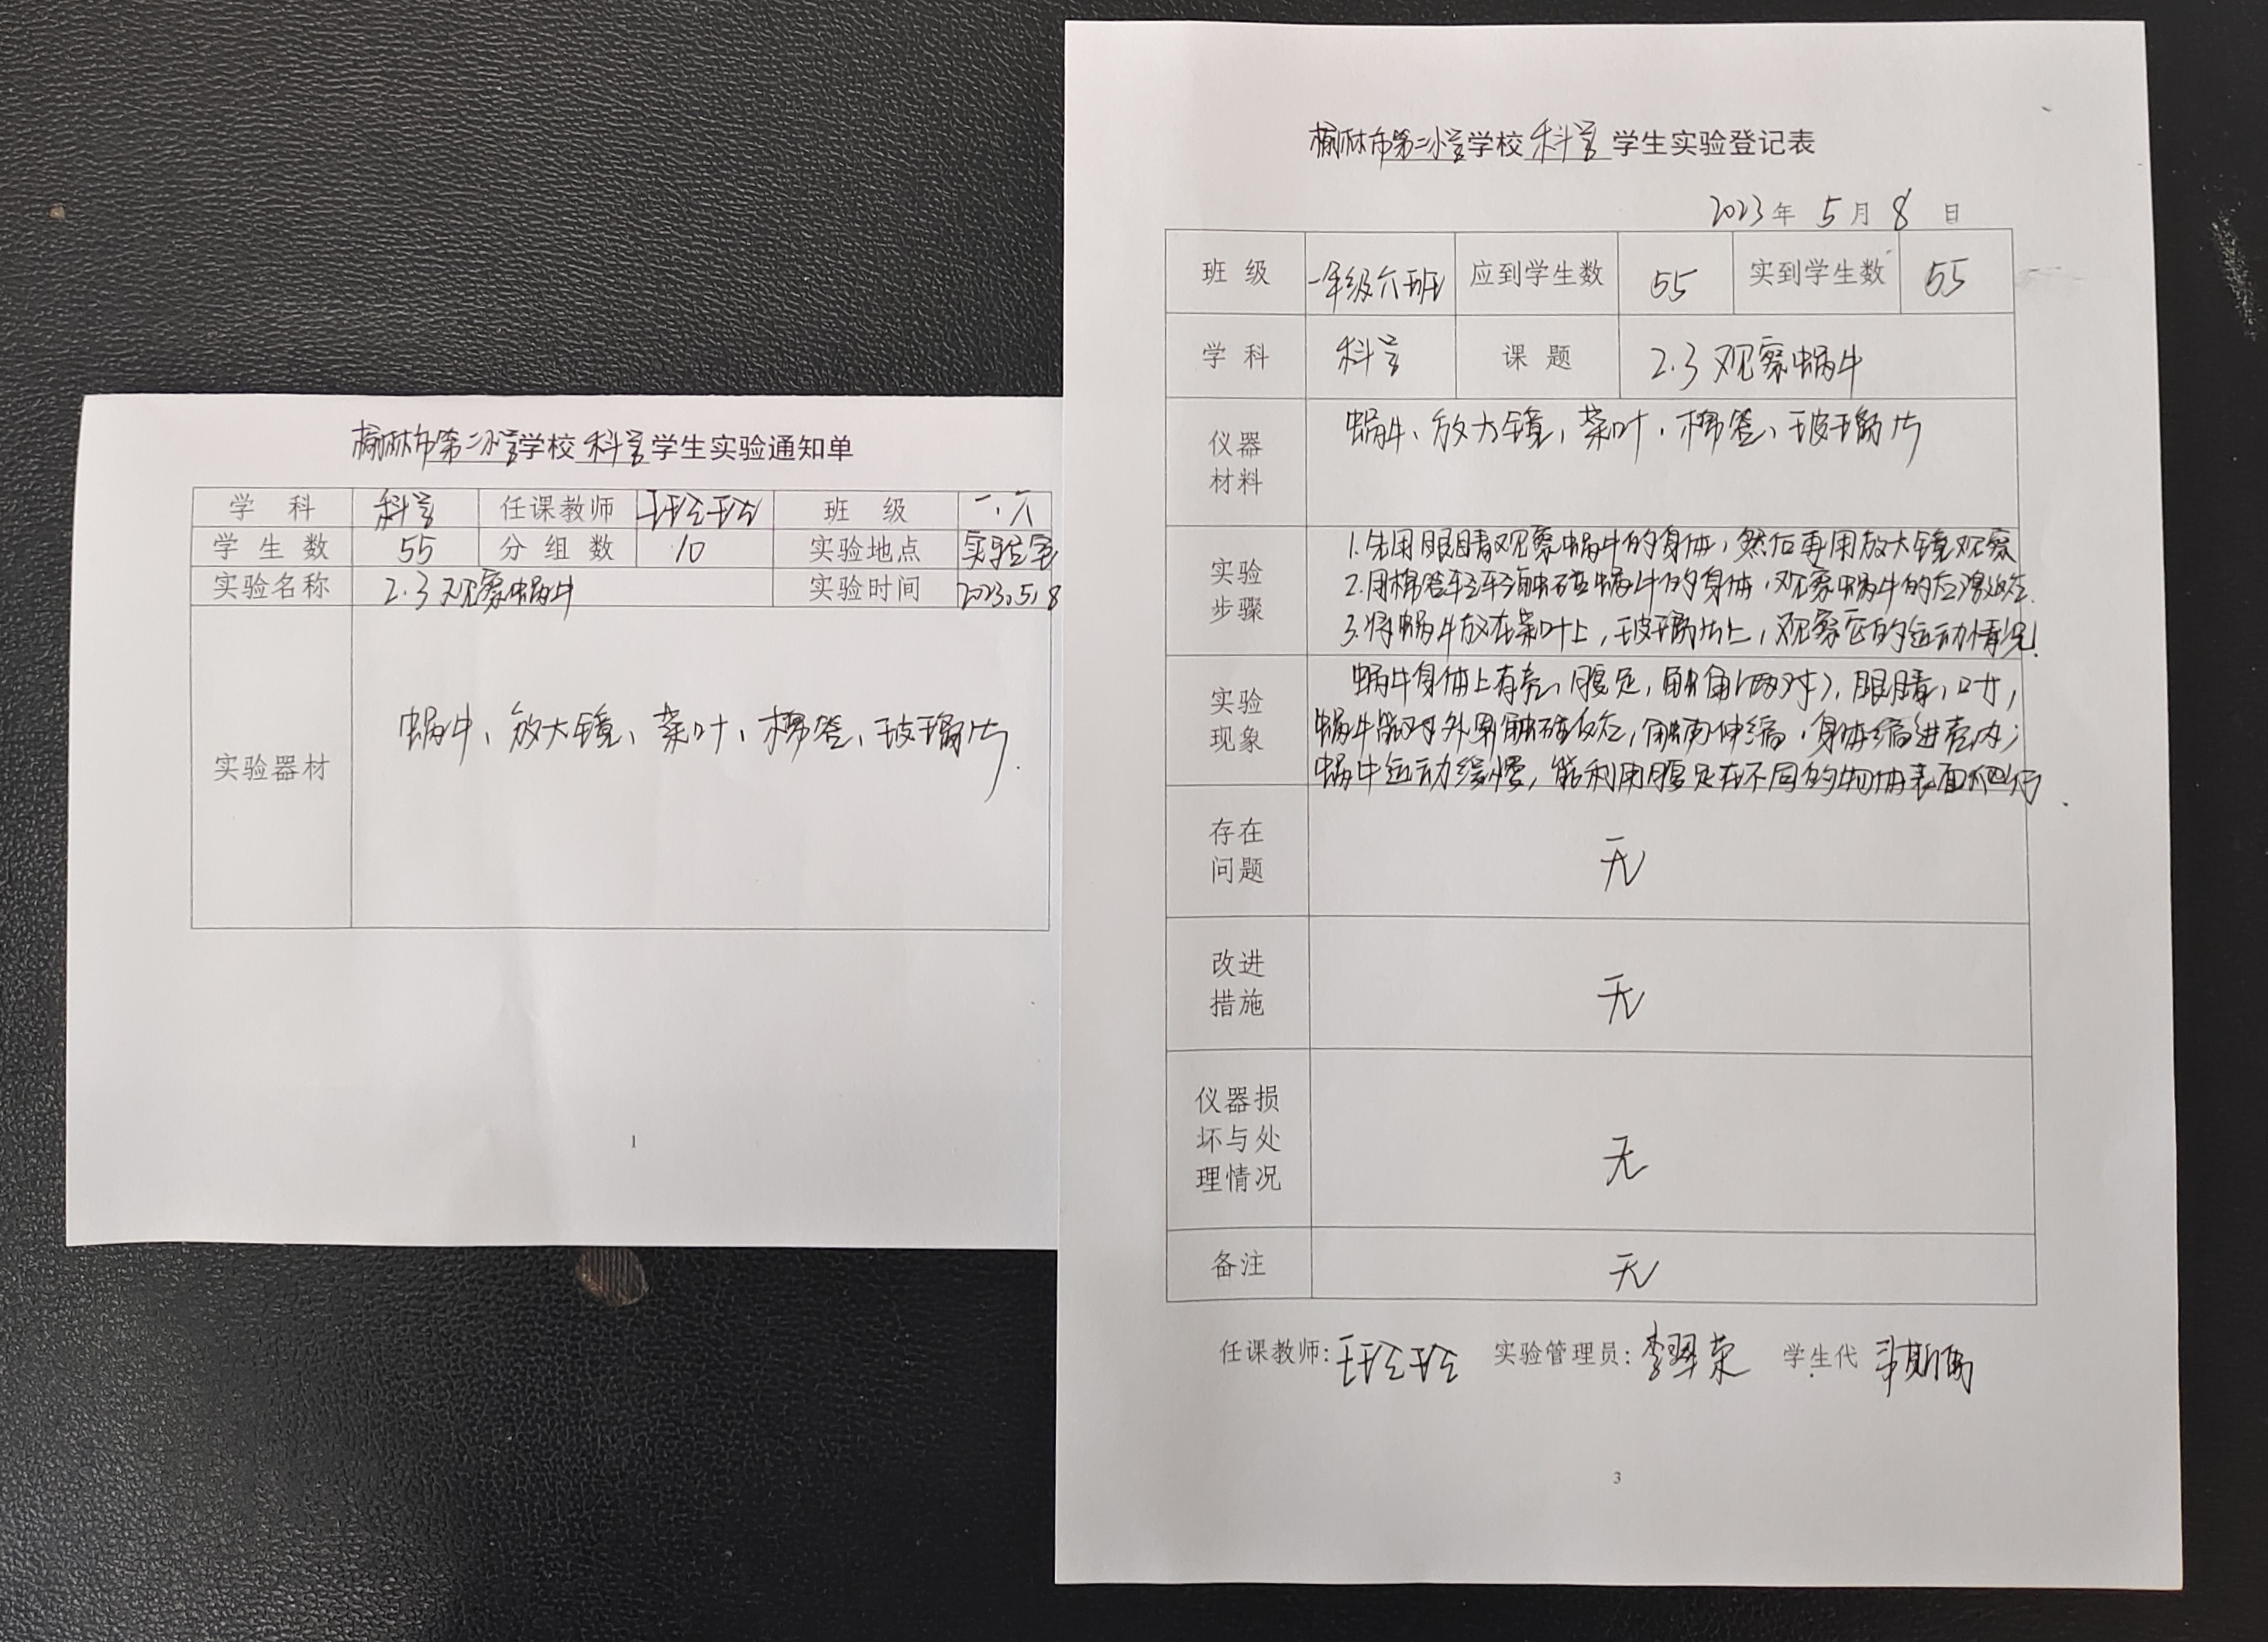 榆林市第二小学学校科学学生实验通知单
学 科 科学 任课教师 班 级 一.六
学 生 数 55 分 组 数 10 实验地点 实验室
实验名称 2.3观察蜗牛 实验时间 2023.5.8
实验器材 蜗牛、放大镜、菜叶、棉签、玻璃片.
1
榆林市第二小学学校科学学生实验登记表
2023年 5月 8 日
班 级 一年级六班 应到学生数 55 实到学生数 55
学 科 科学 课 题 2.3观察蜗牛
仪器
材料
蜗牛、放大镜、菜叶、棉签、玻璃片
实验
步骤
1.先用眼睛观察蜗牛的身体,然后再用放大镜观察
2.用棉签轻轻触碰蜗牛的身体,观察蜗牛的应激反应.
3.将蜗牛放在菜叶上,玻璃片上,观察它的运动情况.
实验
现象
蜗牛身体上有壳、腹足,触角(两对),眼睛,口,
蜗牛能对外界触碰反应,触角伸缩,身体缩进壳内;
蜗牛运动缓慢,能利用腹足在不同的物体表面爬行.
存在
问题
无
改进
措施
无
仪器损
坏与处
理情况
无
备注 无
任课教师: 实验管理员:李翠荣 学生代
3